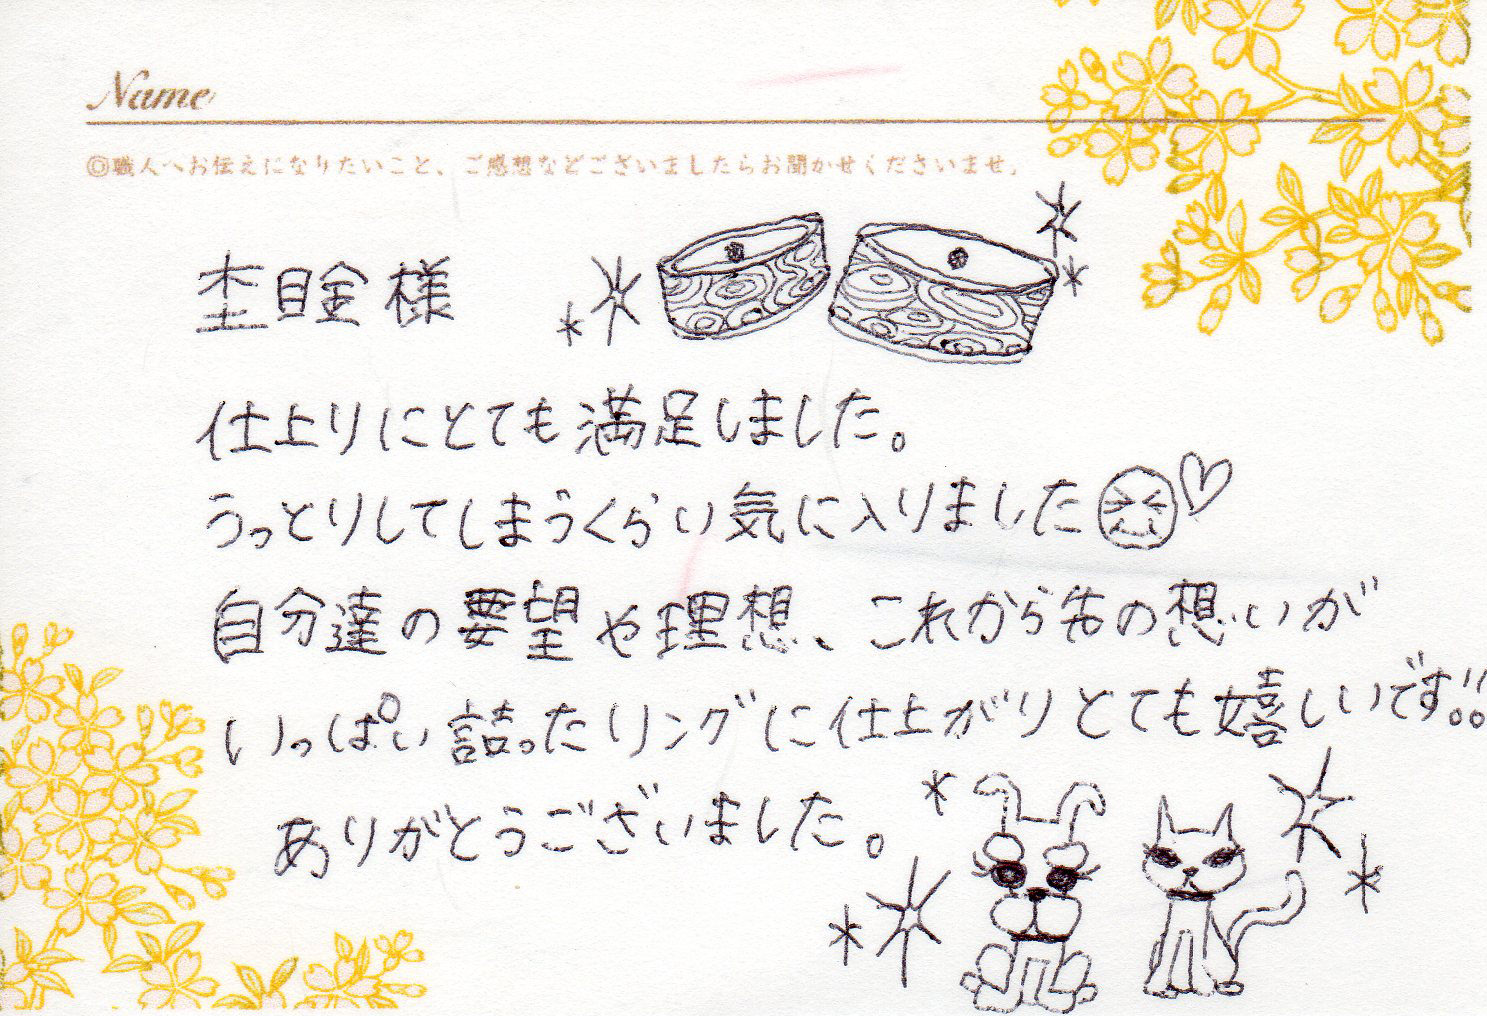 Name
◎職人へお伝えになりたいこと、ご感想などございましたらお聞かせくださいませ。
杢目金様
仕上りにとても満足しました。
うっとりしてしまうくらい気に入りました
自分達の要望や理想、これから先の想いが
いっぱい詰ったリングに仕上がりとても嬉しいです!!
ありがとうございました。